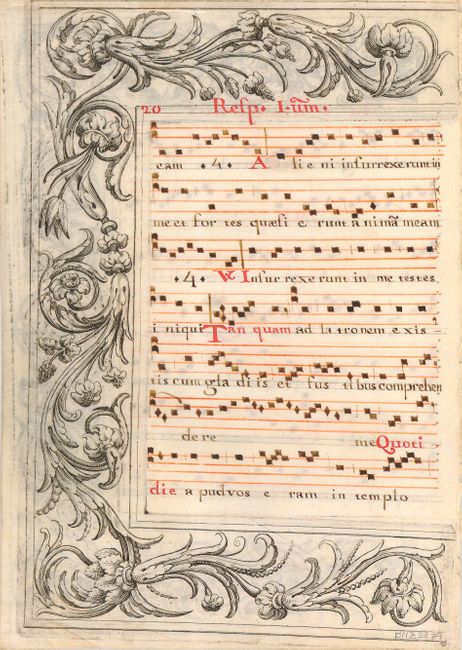 20 Resp. I. ũm.
eam .4. A li e ni insurrexerunt in
me et for tes quæsi e runt a nimã meam
.4. ℣ Insur rexe runt in me testes
i niqui Tan quam ad la tronem e xis
tis cum gla di is et fus ti bus comprehen
de re me Quoti
die a pud vos e ram in templo